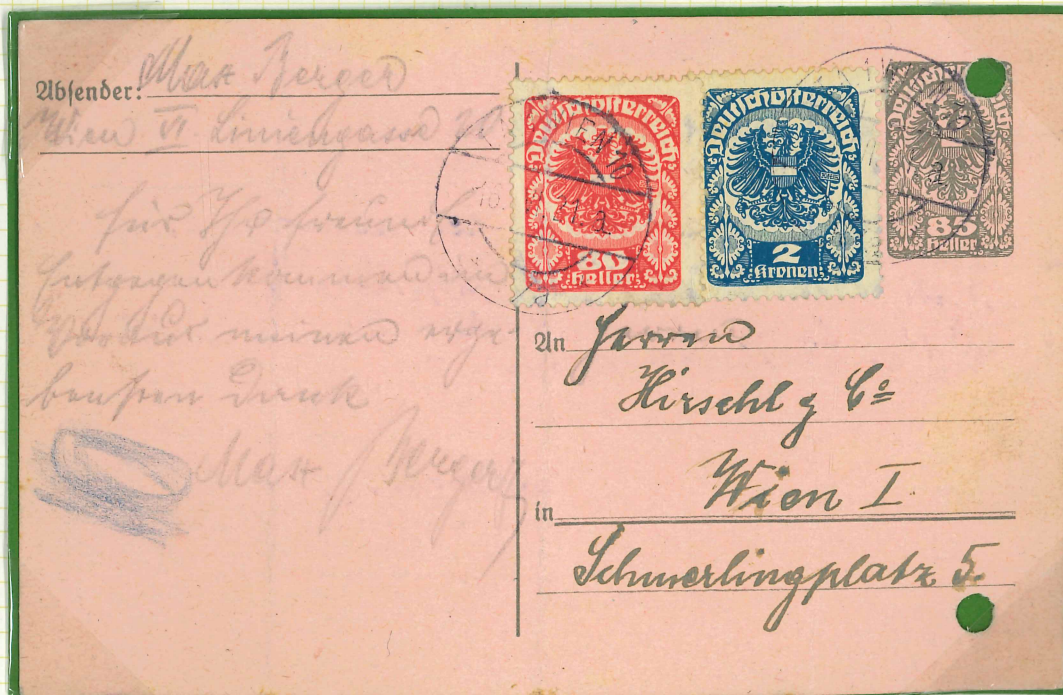 Absender: Max Berger
Wien VI Liniengasse
für Ihr freundl
Entgegenkommen im
Voraus meinen erge-
bensten Dank
Max Berger
Deutschösterreich
80
Heller
Deutschösterreich
2
Kronen
Deutschösterreich
85
Heller
An Herren
Hirschl & Co
in Wien I
Schmerlingplatz 5.